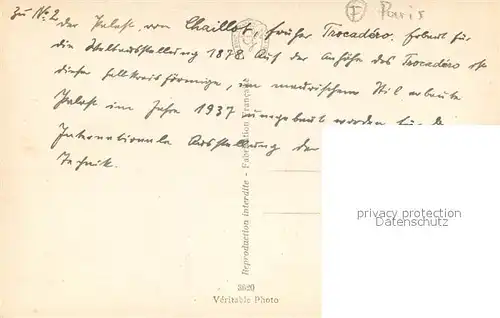 Zu No 2
der Palast von Chaillot, früher Trocadéro. Erbaut für
die Weltausstellung 1878. Auf der Anhöhe des Trocadéro ist
dieser halbkreisförmige, im maurischem Stil erbaute
Palast im Jahre 1937 umgebaut worden für d
Internationale Ausstellung der
Technik.
F Paris
Reproduction interdite - Fabrication Française
3620
Véritable Photo
privacy protection
Datenschutz